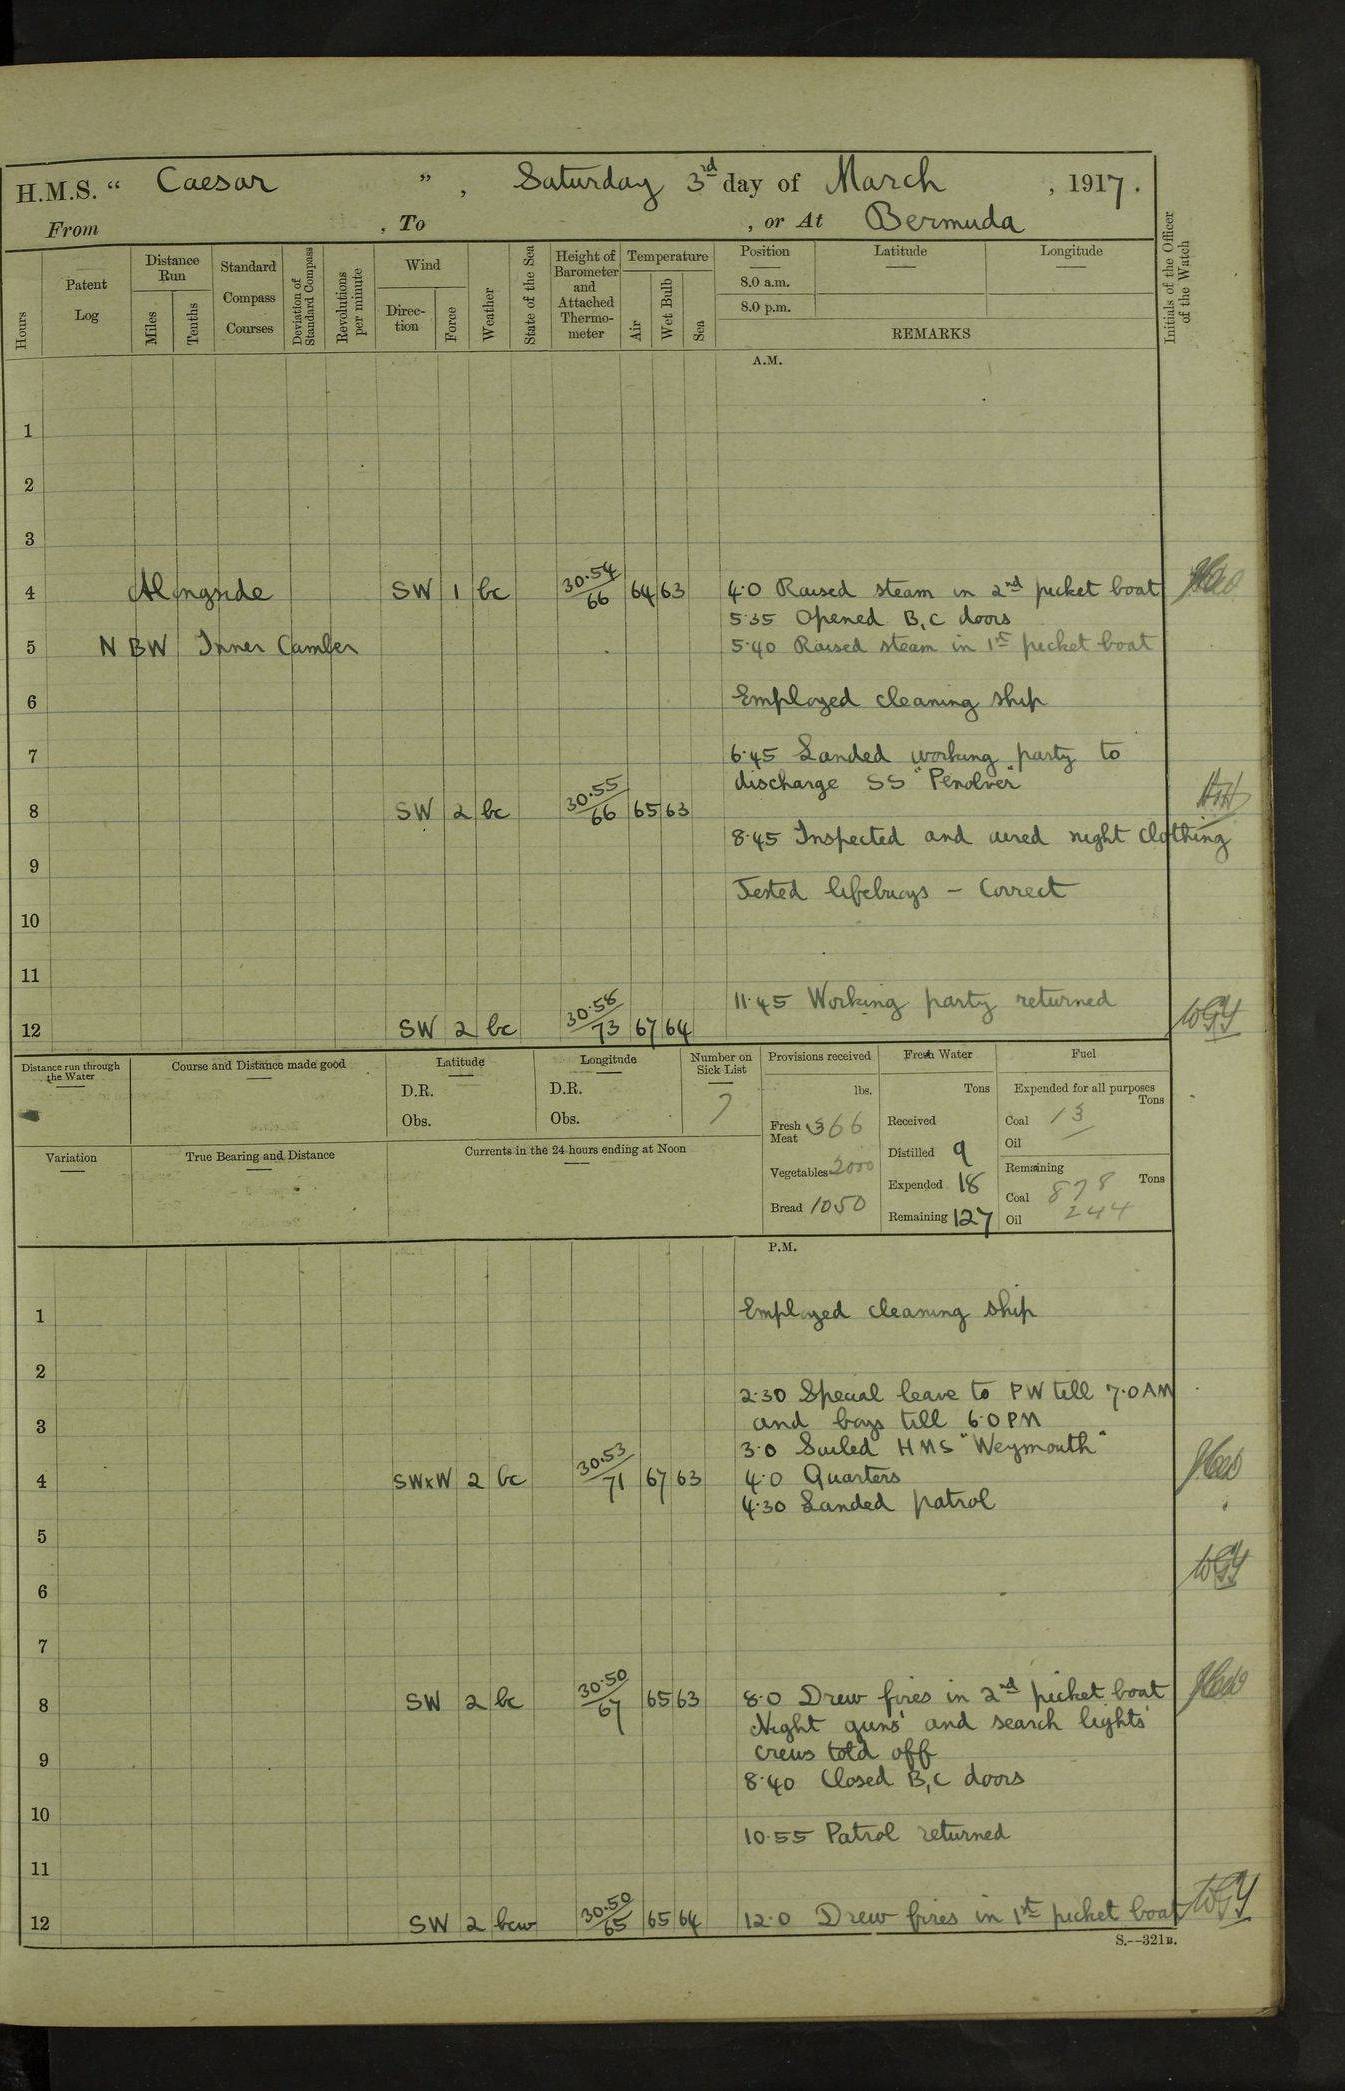 H.M.S. “ Caesar ” , Saturday 3rd day of March , 1917.
From , To , or At Bermuda
Hours
Patent Log
Distance Run
Miles
Tenths
Standard Compass Courses
Deviation of Standard Compass
Revolutions per minute
Wind
Direction
Force
Weather
State of the Sea
Height of Barometer and Attached Thermometer
Temperature
Air
Wet Bulb
Sea
Position
8.0 a.m.
8.0 p.m.
Latitude
Longitude
REMARKS
Initials of the Officer of the Watch
A.M.
1
2
3
4 Alongside SW 1 bc 30.54 66 64 63 4.0 Raised steam in 2nd picket boat
5.35 Opened B, C doors
5 N BW Inner Camber 5.40 Raised steam in 1st picket boat
6 Employed cleaning ship
7 6.45 Landed working party to
discharge SS "Penolver"
8 SW 2 bc 30.55 66 65 63
8.45 Inspected and aired night clothing
9
Tested lifebuoys - Correct
10
11
11.45 Working party returned
12 SW 2 bc 30.58 73 67 64 WGY
Distance run through the Water
Course and Distance made good
Latitude
D.R.
Obs.
Longitude
D.R.
Obs.
Number on Sick List
7
Provisions received
lbs.
Fresh Meat 366
Vegetables 2000
Bread 1050
Fresh Water
Tons
Received
Distilled 9
Expended 18
Remaining 127
Fuel
Expended for all purposes
Tons
Coal 13
Oil
Remaining
Tons
Coal 878
Oil 244
Variation
True Bearing and Distance
Currents in the 24 hours ending at Noon
P.M.
1 Employed cleaning ship
2
2.30 Special leave to PW till 7.0 AM
3 and boys till 6.0 PM
3.0 Sailed HMS "Weymouth"
4 SWxW 2 bc 30.53 71 67 63 4.0 Quarters
4.30 Landed patrol
5
WGY
6
7
8 SW 2 bc 30.50 67 65 63 8.0 Drew fires in 2nd picket boat
Night guns' and search lights'
9 crews told off
8.40 Closed B, C doors
10
10.55 Patrol returned
11
12 SW 2 bcw 30.50 65 65 64 12.0 Drew fires in 1st picket boat WGY
S.--321B.